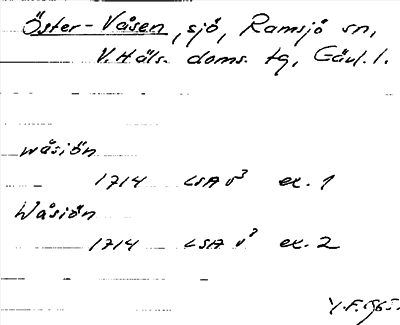 Öster-Våsen, sjö, Ramsjö sn,
V. Häls. doms. tg, Gävl. l.
wåsiön
1714 LSA V³ ex. 1
Wåsiön
1714 LSA V³ ex. 2
Y.F. 1965.